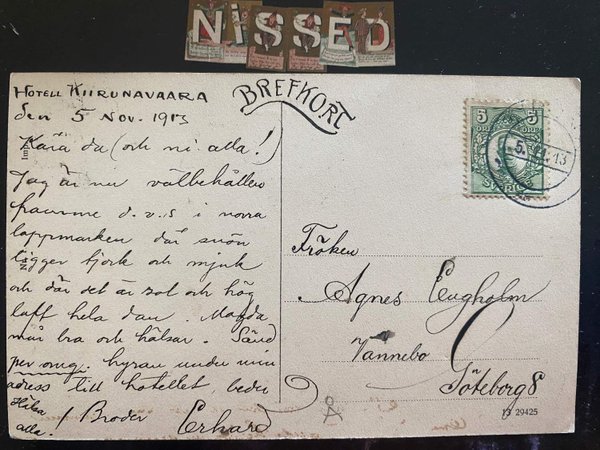 NiSSED
HOTELL KIIRUNAVAARA
den 5 Nov. 1913
Kära da (och ni alla!)
Jag är nu välbehållen
framme d.v.s i norra
lappmarken där snön
ligger tjock och mjuk
och där det är sol och hög
luft hela dan. Magda
mår bra och hälsar. Sänd
per omg. hyran under min
adress till hotellet, beder
Hälsa
alla. / Broder Erhard
BREFKORT
5 5
ÖRE ÖRE
SVERIGE
5.11.13
Fröken
Agnes Engholm
Vannebo
Göteborg 8
13 29425